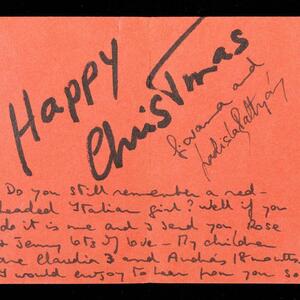 Happy
Christmas
Giovanna and
Do you still remember a red-
headed Italian girl? Well if you
do it is me and I send you, Rose
& Jenny lots of love - My children
are Claudia 3 and András, 18 months.
I would enjoy to hear from you so